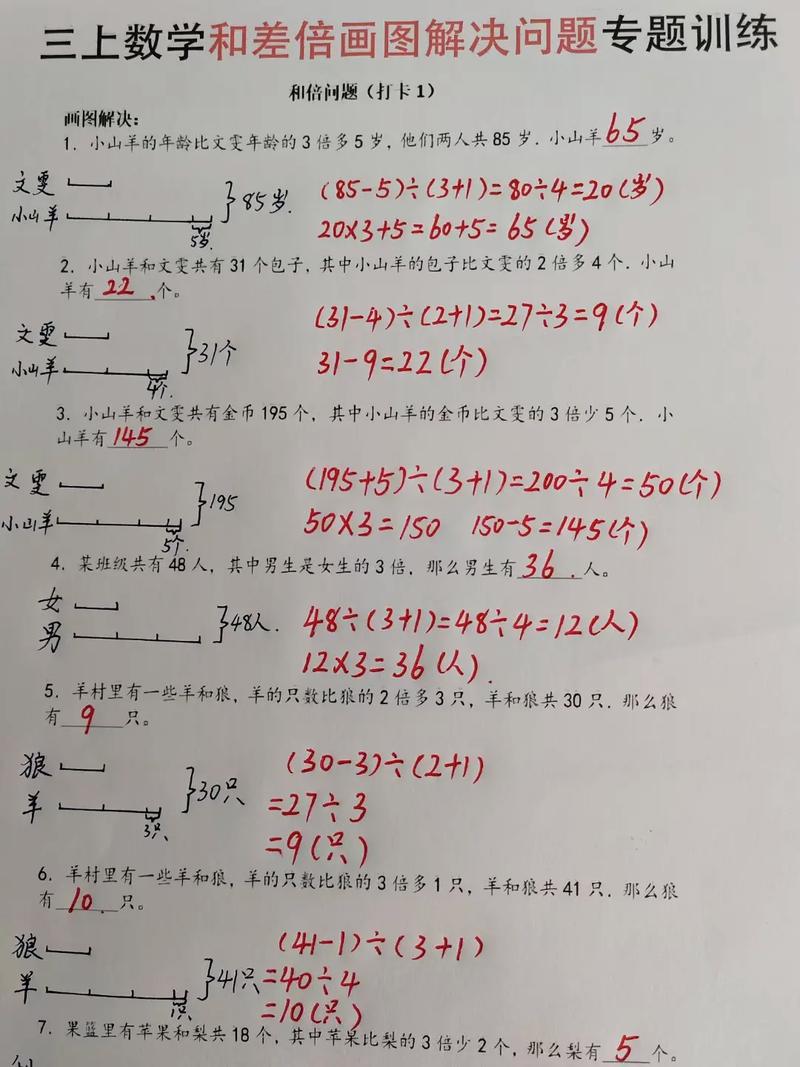 三上数学和差倍画图解决问题专题训练
和倍问题（打卡1）
画图解决：
1．小山羊的年龄比文雯年龄的3倍多5岁，他们两人共85岁．小山羊65岁。
文雯
小山羊
5岁.
85岁.
(85-5)÷(3+1)=80÷4=20(岁)
20×3+5=60+5=65(岁)
2．小山羊和文雯共有31个包子，其中小山羊的包子比文雯的2倍多4个．小山
羊有22.个。
文雯
小山羊
4个.
31个
(31-4)÷(2+1)=27÷3=9(个)
31-9=22(个)
3．小山羊和文雯共有金币195个，其中小山羊的金币比文雯的3倍少5个．小
山羊有145个。
文雯
小山羊
5个.
195
(195+5)÷(3+1)=200÷4=50(个)
50×3=150 150-5=145(个)
4．某班级共有48人，其中男生是女生的3倍，那么男生有36.人。
女
男
48人.
48÷(3+1)=48÷4=12(人)
12×3=36(人).
5．羊村里有一些羊和狼，羊的只数比狼的2倍多3只，羊和狼共30只．那么狼
有9只。
狼
羊
3只
30只
(30-3)÷(2+1)
=27÷3
=9(只)
6．羊村里有一些羊和狼，羊的只数比狼的3倍多1只，羊和狼共41只．那么狼
有10.只。
狼
羊
1只
41只
(41-1)÷(3+1)
=40÷4
=10(只)
7．果篮里有苹果和梨共18个，其中苹果比梨的3倍少2个，那么梨有5个。